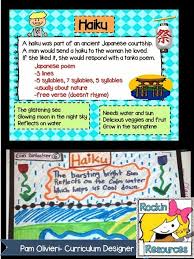 Haiku
A haiku was part of an ancient Japanese courtship.
A man would send a haiku to the woman he loved.
If she liked it, she would respond with a tanka poem.
-Japanese poem
-3 lines
-5 syllables, 7 syllables, 5 syllables
-usually about nature
-Free verse (doesn't rhyme)
祭
The glistening sea
Glowing moon in the night sky
Reflects on water
Needs water and sun
Delicious veggies and fruit
Grow in the springtime
Haiku
The bursting bright Sun
Reflects on the Calm water
Much helps us Cool down
Pam Olivieri- Curriculum Designer
Rockin
Resources